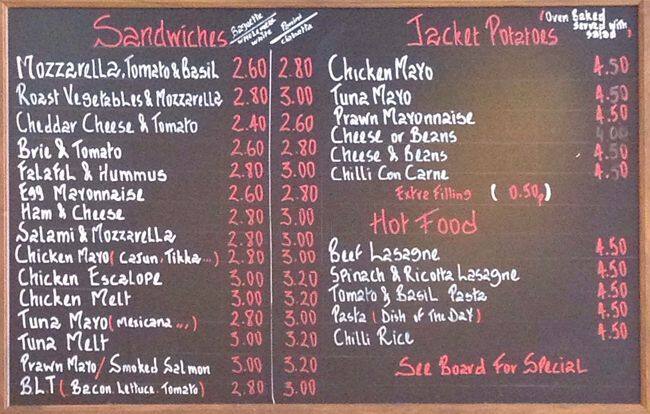 Sandwiches Baguette wholemeal white Panini ciabatta
Mozzarella, Tomato & Basil 2.60 2.80
Roast Vegetables & Mozzarella 2.80 3.00
Cheddar Cheese & Tomato 2.40 2.60
Brie & Tomato 2.60 2.80
Falafel & Hummus 2.80 3.00
Egg Mayonnaise 2.60 2.80
Ham & Cheese 2.80 3.00
Salami & Mozzarella 2.80 3.00
Chicken Mayo (Cajun, Tikka...) 2.80 3.00
Chicken Escalope 3.00 3.20
Chicken Melt 3.00 3.20
Tuna Mayo (Mexicana ...) 2.80 3.00
Tuna Melt 3.00 3.20
Prawn Mayo / Smoked Salmon 3.00 3.20
BLT (Bacon. Lettuce. Tomato) 2.80 3.00
Jacket Potatoes (Oven Baked served with salad)
Chicken Mayo 4.50
Tuna Mayo 4.50
Prawn Mayonnaise 4.50
Cheese or Beans 4.00
Cheese & Beans 4.50
Chilli Con Carne 4.50
Extra Filling (0.50p)
Hot Food
Beef Lasagne 4.50
Spinach & Ricotta Lasagne 4.50
Tomato & Basil Pasta 4.50
Pasta (Dish of The Day) 4.50
Chilli Rice 4.50
See Board For Special